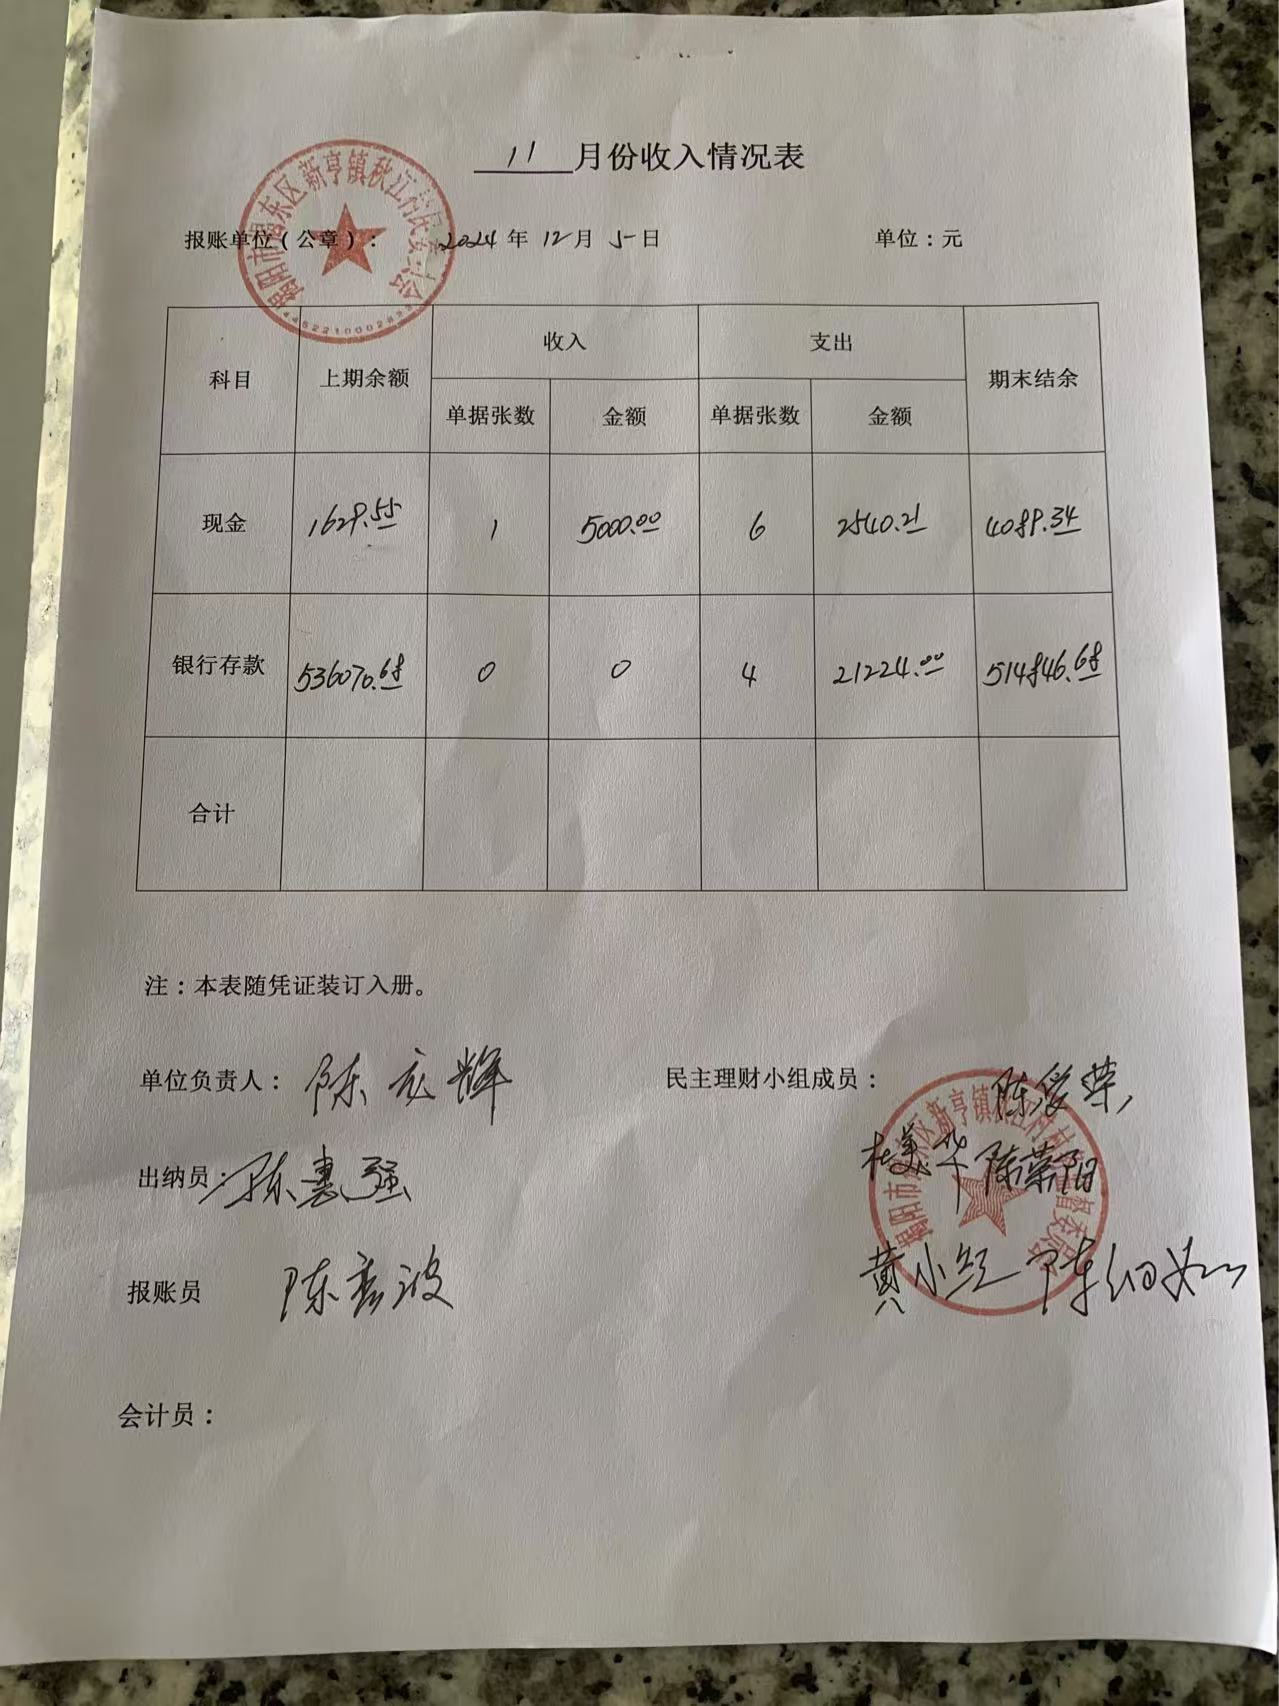 11 月份收入情况表
揭阳市揭东区新亨镇秋江村民委员会
4452210002833
报账单位（公章）： 2024 年 12 月 5 日 单位：元
科目 上期余额 收入 支出 期末结余
单据张数 金额 单据张数 金额
现金 1629.55 1 5000.00 6 2540.21 4089.34
银行存款 536070.68 0 0 4 21224.00 514846.68
合计
注：本表随凭证装订入册。
单位负责人： 陈 辉 民主理财小组成员： 陈爱荣
出纳员： 陈惠强 杜美华 陈荣阳
报账员 陈 波 黄小 陈细
会计员：